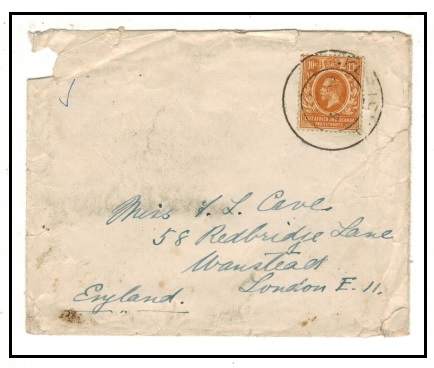 10c
EAST AFRICA AND UGANDA
PROTECTORATES
Miss L. Cave
58 Redbridge Lane
Wanstead
London E. 11.
England.